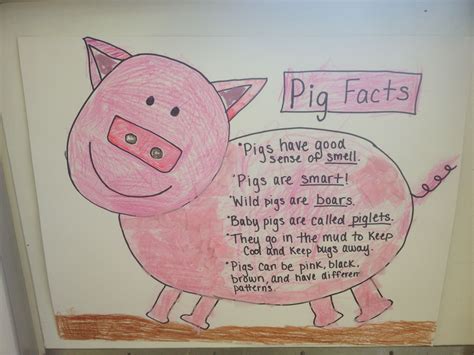 Pig Facts
*Pigs have good
sense of smell.
*Pigs are smart!
*Wild pigs are boars.
*Baby pigs are called piglets.
*They go in the mud to keep
Cool and keep bugs away.
*Pigs can be pink, black,
brown, and have different
patterns.